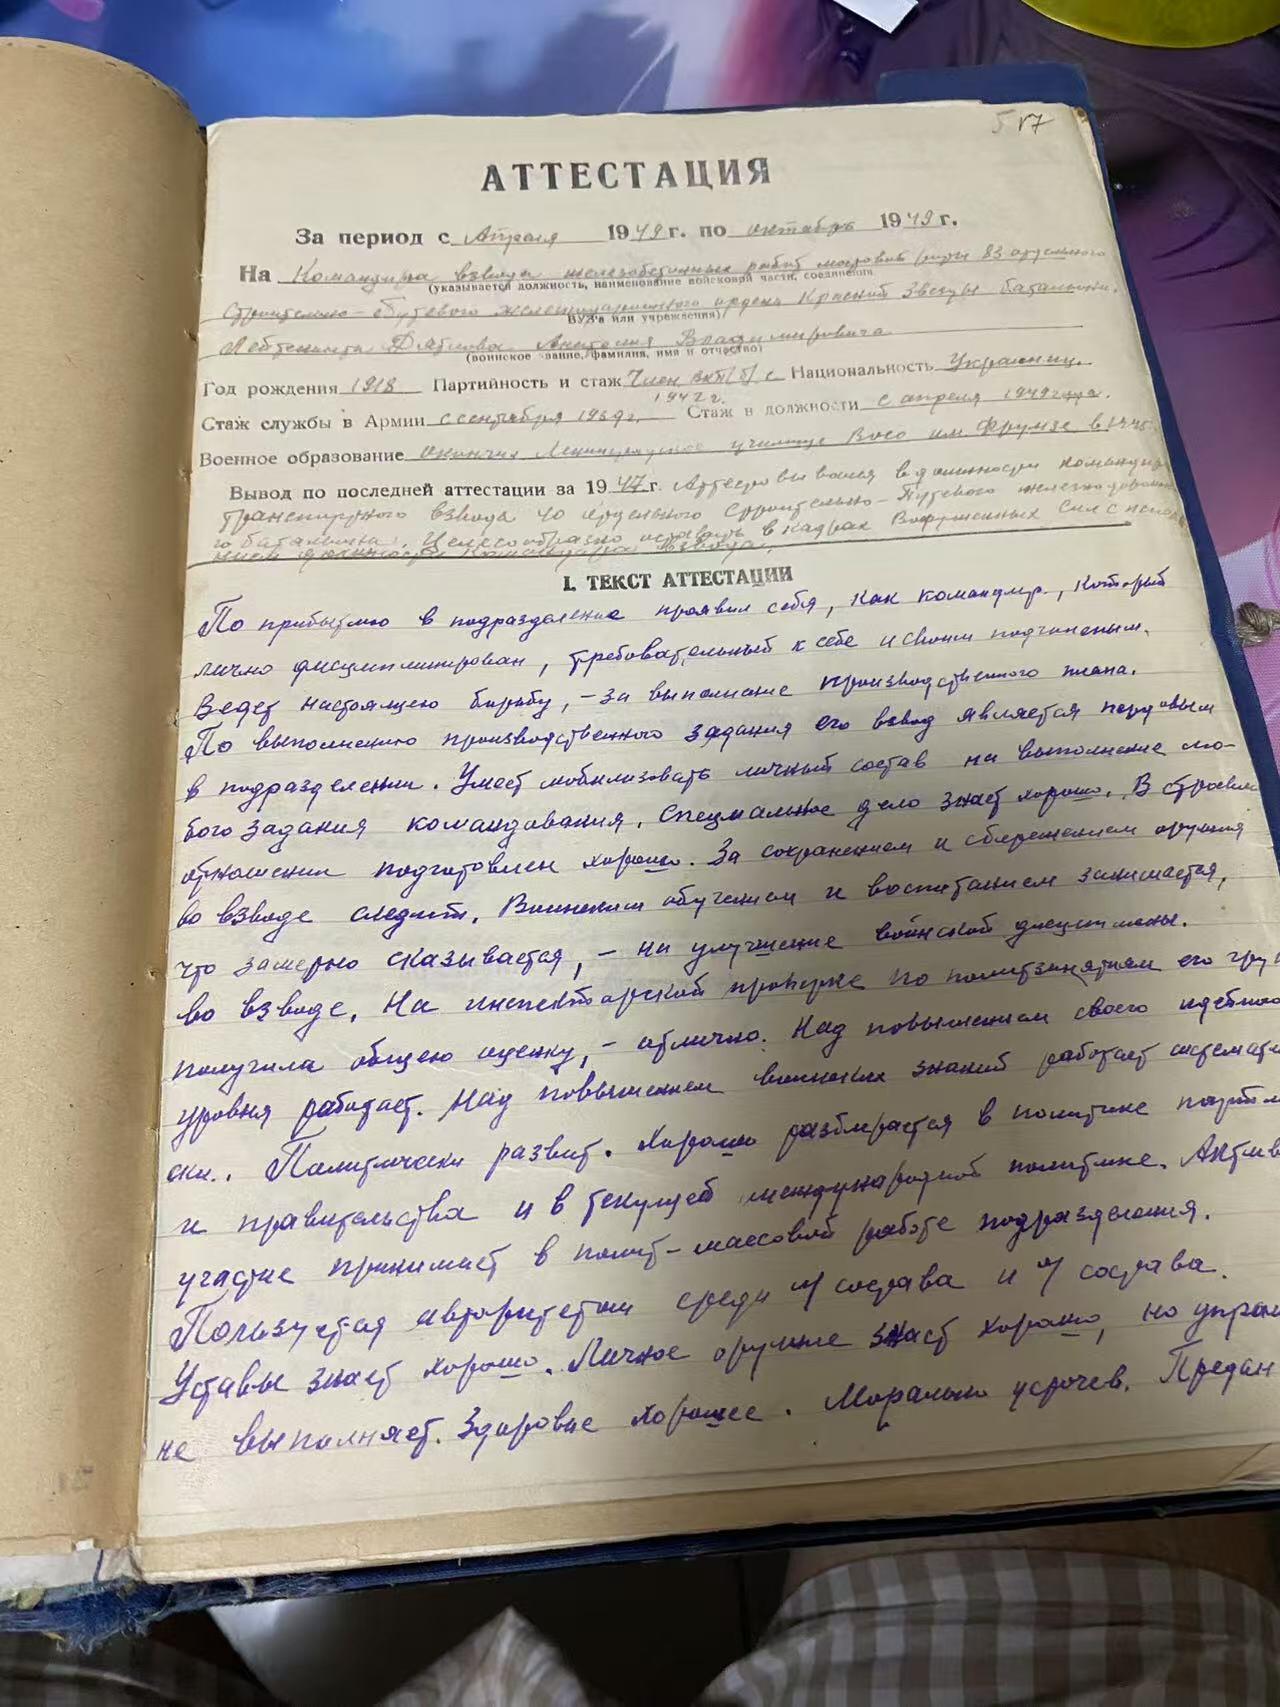 517
АТТЕСТАЦИЯ
За период с Апреля 1949 г. по октябрь 1949 г.
На Командира взвода железобетонных работ мостовой роты 83 отдельного
(указывается должность, наименование войсковой части, соединения
строительно-путевого железнодорожного ордена Красной Звезды батальона.
ВУЗ'а или учреждения)
Лейтенанта Анатолия Владимировича
(воинское звание, фамилия, имя и отчество)
Год рождения 1918 Партийность и стаж Член ВКП(б) с Национальность Украинец
1942 г.
Стаж службы в Армии с сентября 1939 г. Стаж в должности с апреля 1949 года.
Военное образование окончил Ленинградское училище Восо им. Фрунзе в
Вывод по последней аттестации за 1947 г. Аттестовывался в должности командира
транспортного взвода 40 отдельного строительно-Путевого железнодорожно
го батальона. Целесообразно оставить в кадрах Вооруженных Сил с исполь
нием должности Командира взвода.
I. ТЕКСТ АТТЕСТАЦИИ
По прибытию в подразделение проявил себя, как командир, который
лично дисциплинирован, требовательный к себе и своим подчиненым.
Ведет настоящею борьбу, – за выполнение производственного плана.
По выполнению производственного задания его взвод является передовым
в подразделении. Умеет мобилизовать личный состав на выполнение лю-
бого задания командования. Специальное дело знает хорошо. В строевом
отношении подготовлен хорошо. За сохранением и сбережением оружия
во взводе следит. Воинским обучением и воспитанием занимается,
что замерно сказывается, – на улучшение войнской дисциплины.
во взводе. На инспекторской проверке по политзанятиям его груп
получила общею оценку, – отлично. Над повышением своего идейного
уровня работает. Над повышением воинских знаний работает системати
ски. Политически развит. Хорошо разбирается в политике партии
и правительства и в текущей международной политике. Актив
участие принимает в полит-массовой работе подразделения.
Пользуется авторитетом среди л/состава и о/состава.
Уставы знает хорошо. Личное оружие знает хорошо, но упраж
не выполняет. Здоровье хорошее. Морально устойчев. Предан